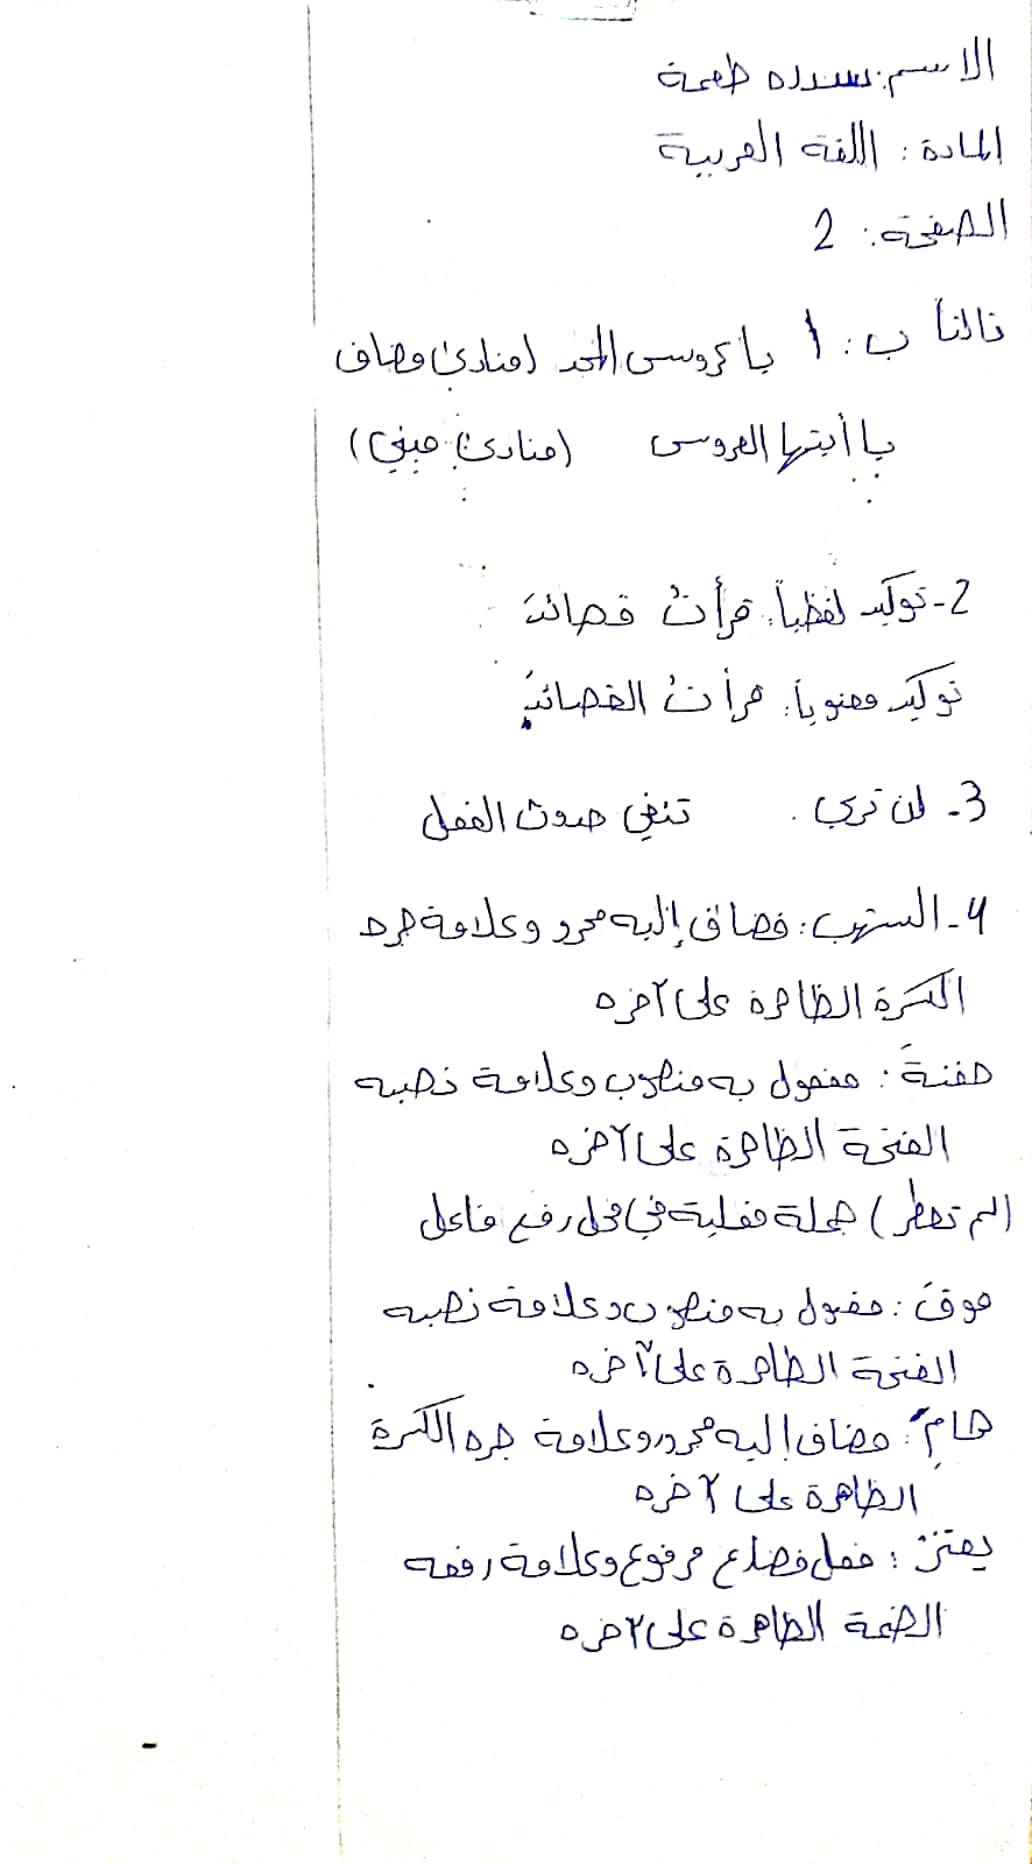 الاسم: سدره طعمة
المادة: اللغة العربية
الصفحة: 2
ثالثاً ب: 1 يا عروس المجد (منادى مضاف
يا أيتها العروس (منادى مبني)
2- توكيد لفظياً: قرأتُ قصائدَ
توكيد معنوياً: قرأتُ القصائدَ
3- لن تري . تنفي حدوث الفعل
4- الشهب: مضاف إليه مجرور وعلامة جره
الكسرة الظاهرة على آخره
حفنةَ: مفعول به منصوب وعلامة نصبه
الفتحة الظاهرة على آخره
(لم تعطر) جملة فعلية في محل رفع فاعل
فوقَ: مفعول به منصوب وعلامة نصبه
الفتحة الظاهرة على آخره
هامِ: مضاف إليه مجرور وعلامة جره الكسرة
الظاهرة على آخره
يعتزُ: فعل مضارع مرفوع وعلامة رفعه
الضمة الظاهرة على آخره